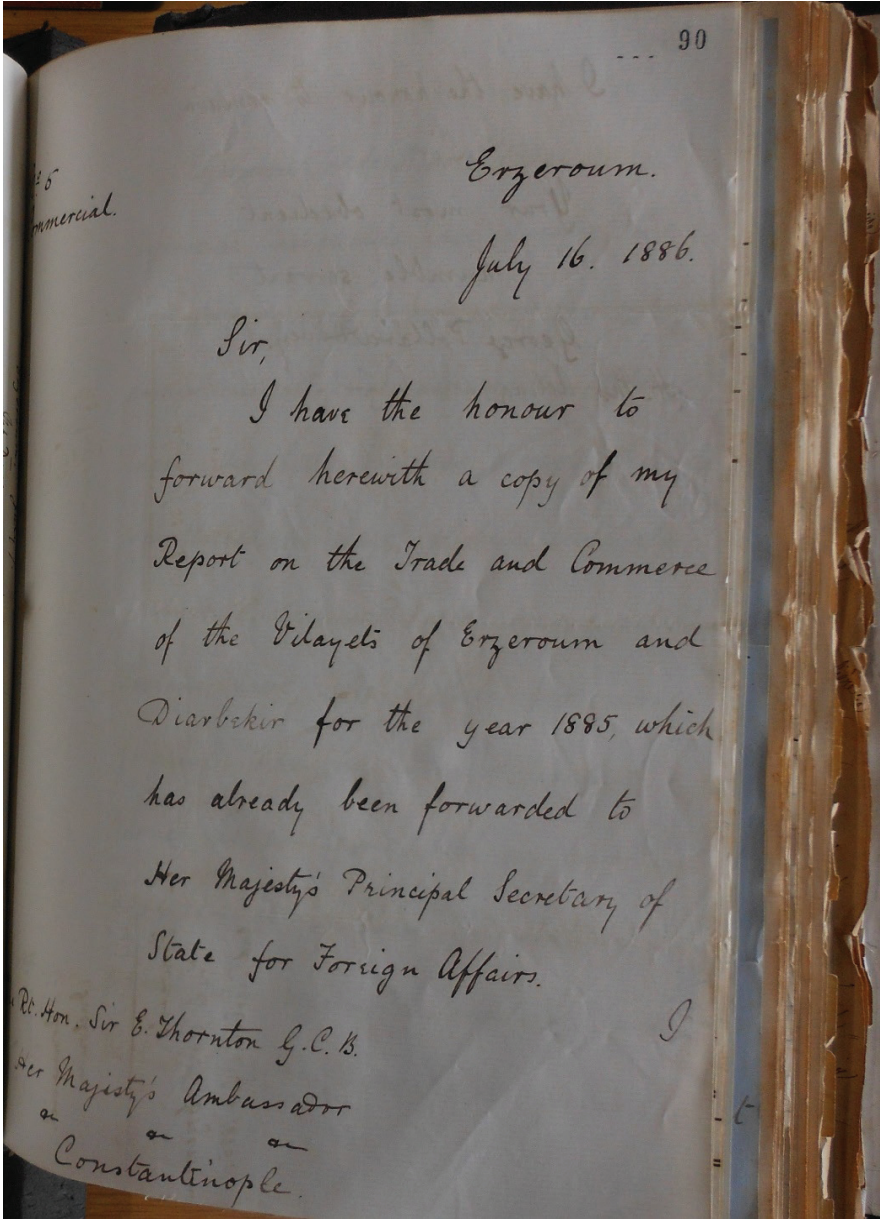 90
Erzeroum.
6
Commercial.
July 16. 1886.
Sir,
I have the honour to
forward herewith a copy of my
Report on the Trade and Commerce
of the Vilayets of Erzeroum and
Diarbekir for the year 1885, which
has already been forwarded to
Her Majesty's Principal Secretary of
State for Foreign Affairs.
I
Rt. Hon. Sir E. Thornton G.C.B.
Her Majesty's Ambassador
Constantinople.